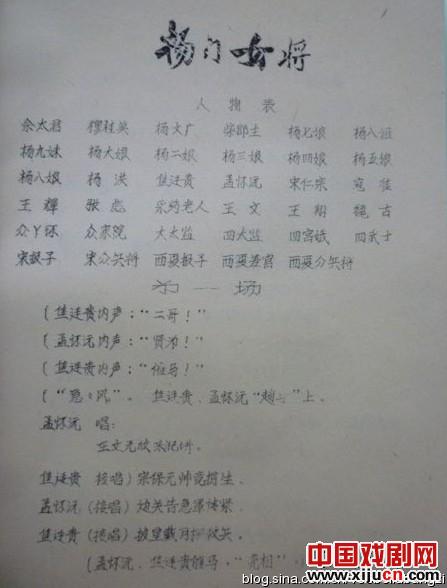 杨门女将
人物表
佘太君 穆桂英 杨文广 柴郡主 杨七娘 杨八姐
杨九妹 杨大娘 杨二娘 杨三娘 杨四娘 杨五娘
杨八娘 杨洪 焦廷贵 孟怀沅 宋仁宗 寇准
王辉 张彪 采药老人 王文 王翔 魏古
众丫环 众家院 大太监 四太监 四宫娥 四武士
宋报子 宋众兵将 西夏报子 西夏差官 西夏众兵将
第一场
(焦廷贵内声:“二哥!”
(孟怀沅内声:“贤弟!”
(焦廷贵内声:“催马!”
焦廷贵、孟怀沅“趟马”上。
孟怀沅 唱:
王文元
焦廷贵(接唱)宋保元帅
孟怀沅(接唱)边关告急
焦廷贵(接唱)披星戴月
(孟怀沅、焦廷贵催马,“亮相”
中国戏剧网
www.xijucn.com
blog.sina.com.cn